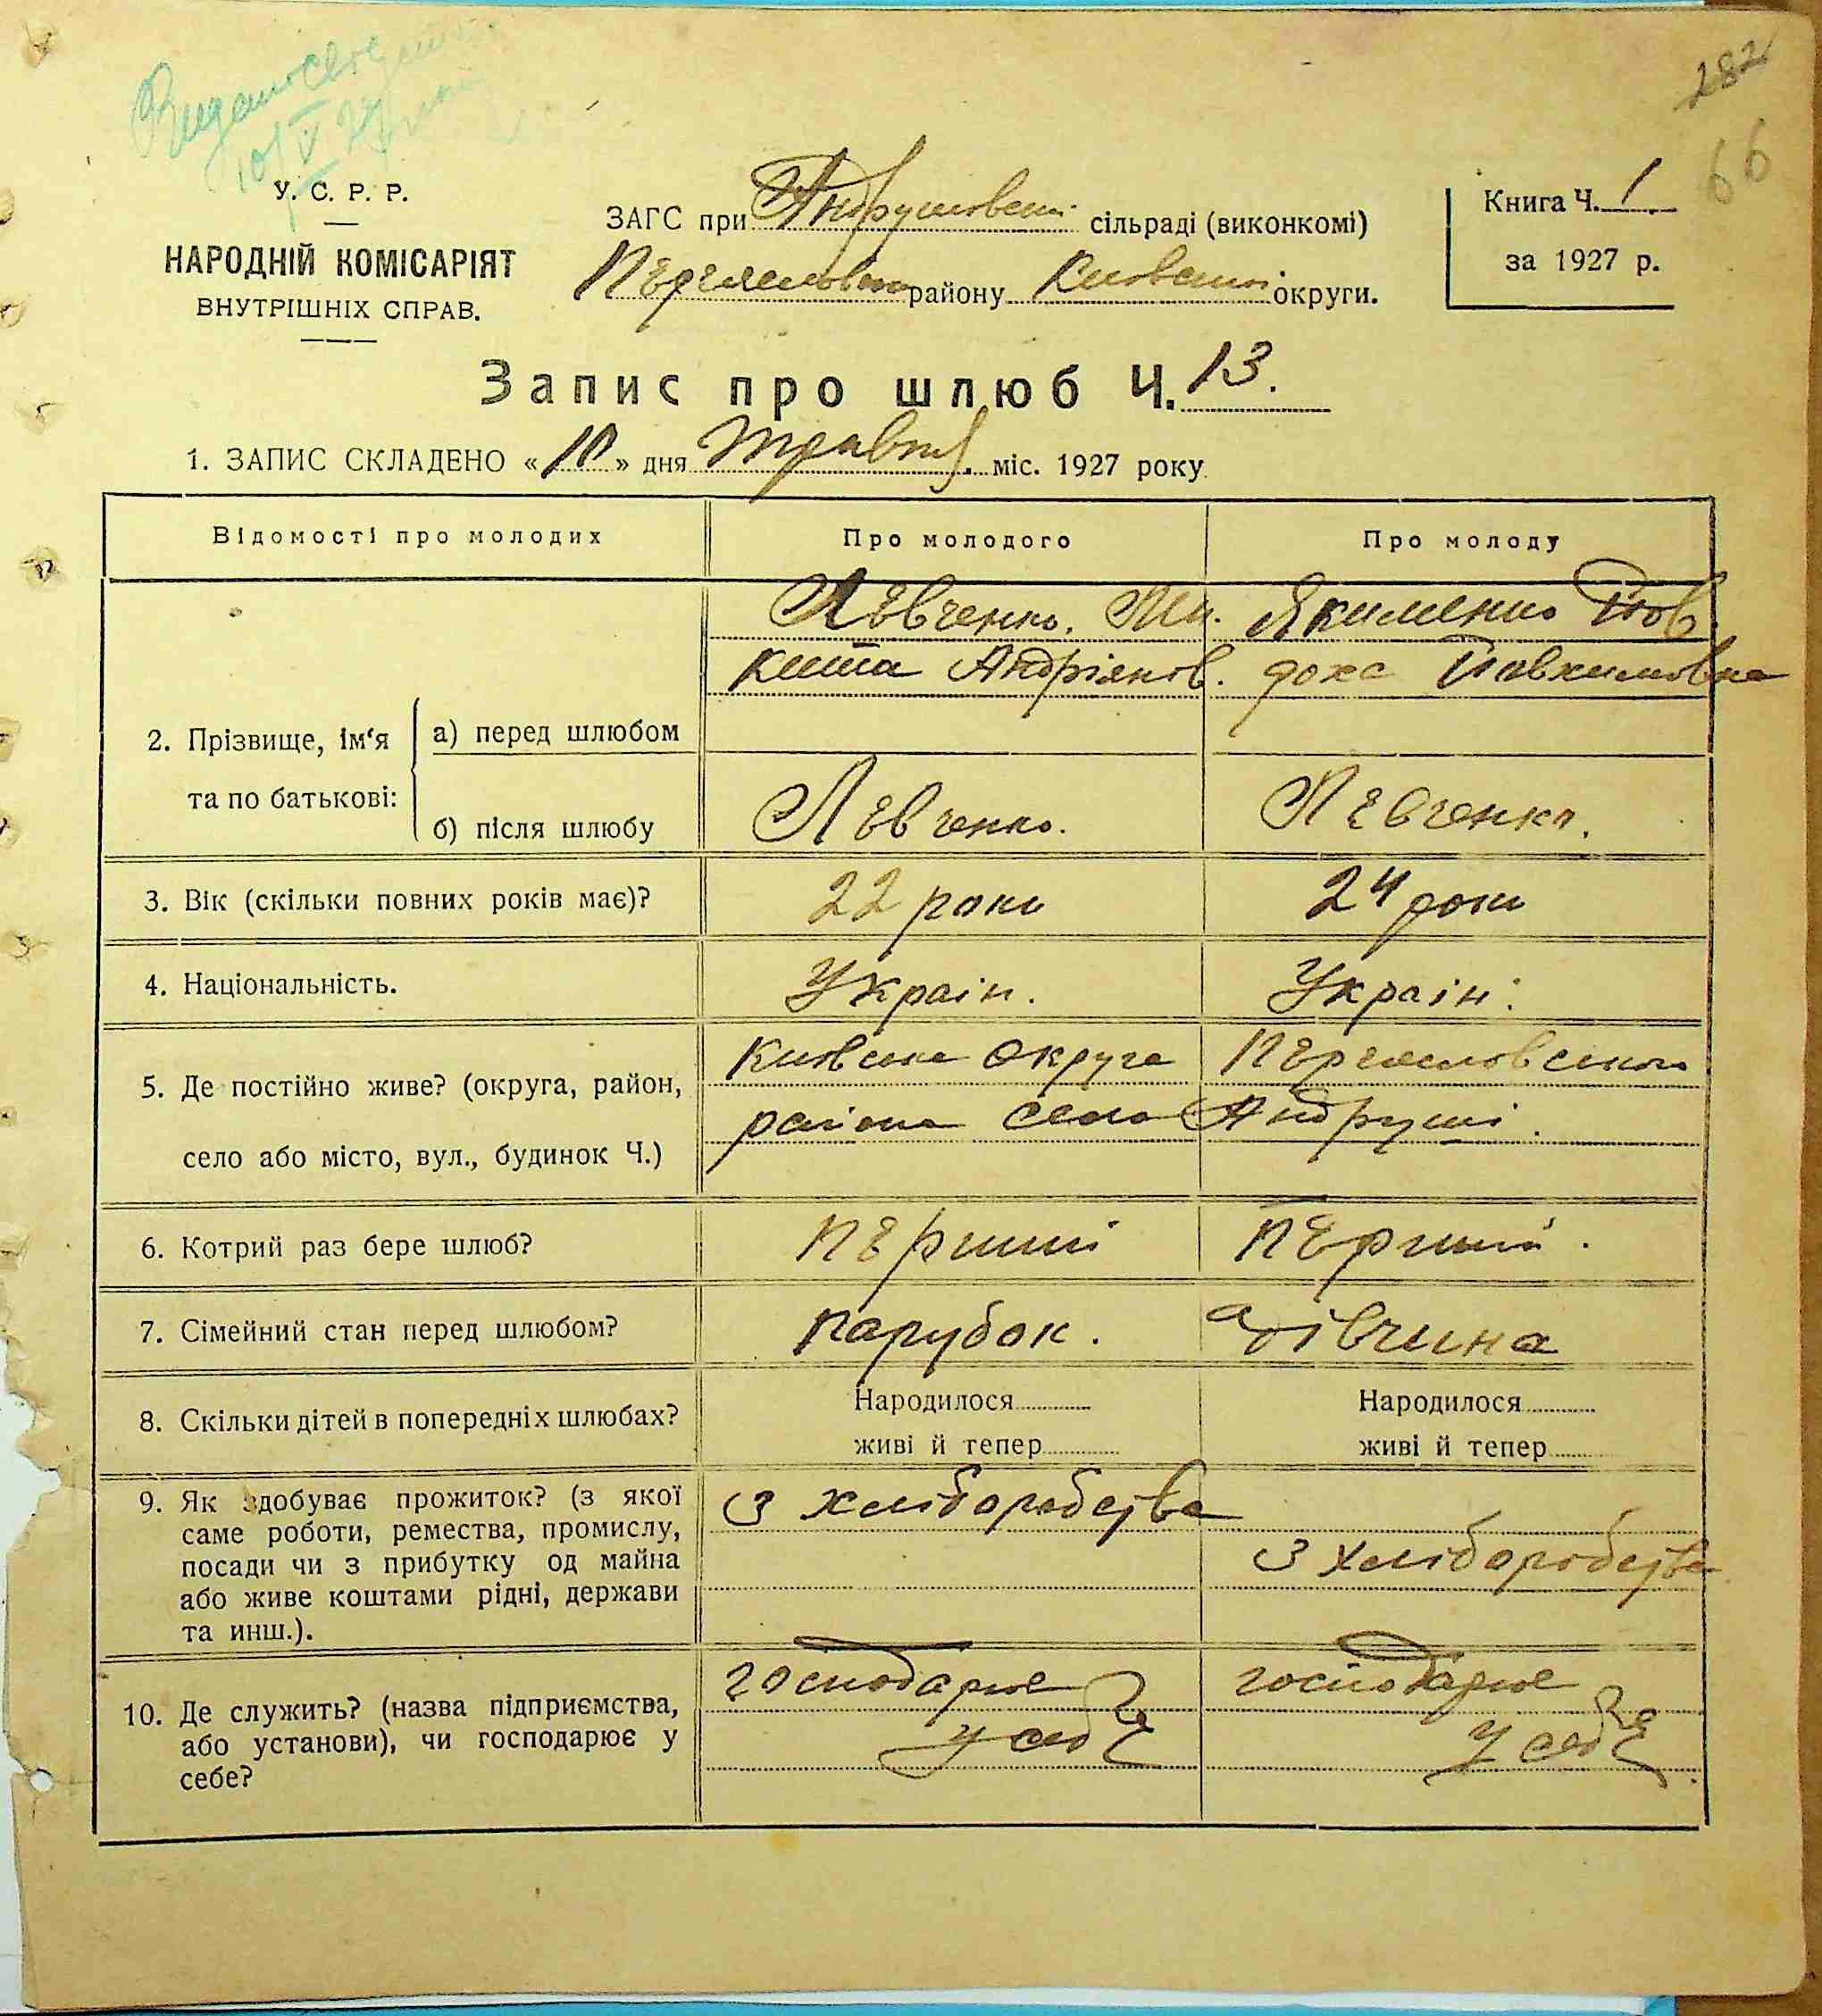 282
66
10/V 27
У. С. Р. Р.
НАРОДНІЙ КОМІСАРІЯТ
ВНУТРІШНІХ СПРАВ.
ЗАГС при Андрушовській сільраді (виконкомі)
району Київської округи.
Книга Ч. 1
за 1927 р.
Запис про шлюб Ч. 13.
1. ЗАПИС СКЛАДЕНО «10» дня травня міс. 1927 року
Відомості про молодих
Про молодого
Про молоду
2. Прізвище, ім'я та по батькові:
а) перед шлюбом
Левченко. Ми.
кита Андріянов.
Якименко Йов
доха Йовхимовна
б) після шлюбу
Левченко.
Левченко.
3. Вік (скільки повних років має)?
22 роки
24 роки
4. Національність.
Украін.
Украін.
5. Де постійно живе? (округа, район,
село або місто, вул., будинок Ч.)
Київська округа
района село Андруші.
6. Котрий раз бере шлюб?
перший
перший.
7. Сімейний стан перед шлюбом?
парубок.
дівчина
8. Скільки дітей в попередніх шлюбах?
Народилося
живі й тепер
Народилося
живі й тепер
9. Як здобуває прожиток? (з якої
саме роботи, ремества, промислу,
посади чи з прибутку од майна
або живе коштами рідні, держави
та инш.).
З хліборобства
З хліборобства
10. Де служить? (назва підприємства,
або установи), чи господарює у
себе?
господарює
у себе
господарює
у себе